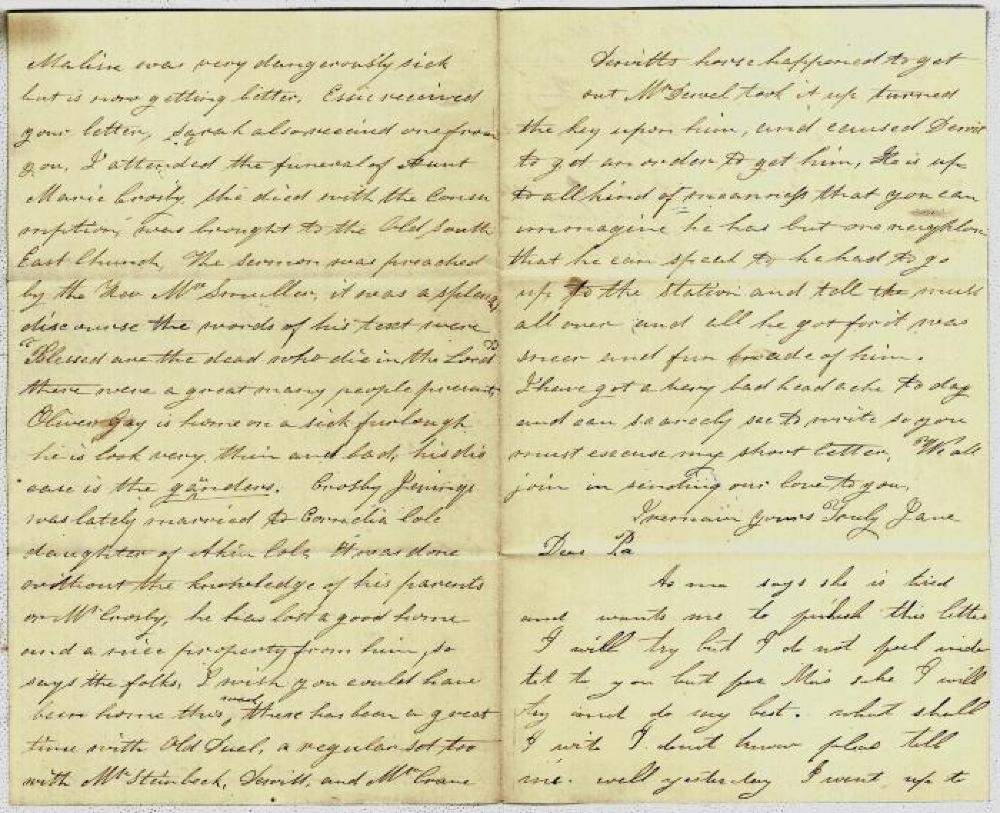 Malisia was very dangerously sick
but is now getting better. Essie received
your letter, Sarah also received one from
you. I attended the funeral of Aunt
Marie Crosby, she died with the Consu
mption, was brought to the Old South
East Church, The sermon was preached
by the Rev Mr Smuller, it was a splend
discourse the words of his text were
"Blessed are the dead who die in the Lord"
there were a great many people present,
Oliver Gay is home on a sick furlough
he is look very thin and bad, his dis
ease is the ganders. Crosby Jenings
was lately married to Cornelia Cole
daughter of Akin Cole It was done
without the knowledge of his parents
or Mr Crosby, he has lost a good home
and a nice property from him, so
says the folks, I wish you could have
been home this week, there has been a great
time with Old Duel, a regular set too
with Mr Steinbeck, Dewitt, and Mr Crane
Dewitts horse happened to get
out Mr Dewel took it up turned
the key upon him, and caused Dewitt
to get an order to get him, He is up
to all kind of meanness that you can
immagine he has but one neighbor
that he can speak to he had to go
up to the station and tell the
all over and all he got for it was
sneer and fun made of him.
I have got a very bad head ache to day
and can scarcely see to write so you
must excuse my short letter, We all
join in sending our love to you,
I remain yours Truly Jane
Dear Pa
As ma says she is tired
and wants me to finish this letter
I will try but I do not feel inde
ted to you but for Mas sake I will
try and do my best. what shall
I write I dont know pleas tell
me. well yesterday I went up to